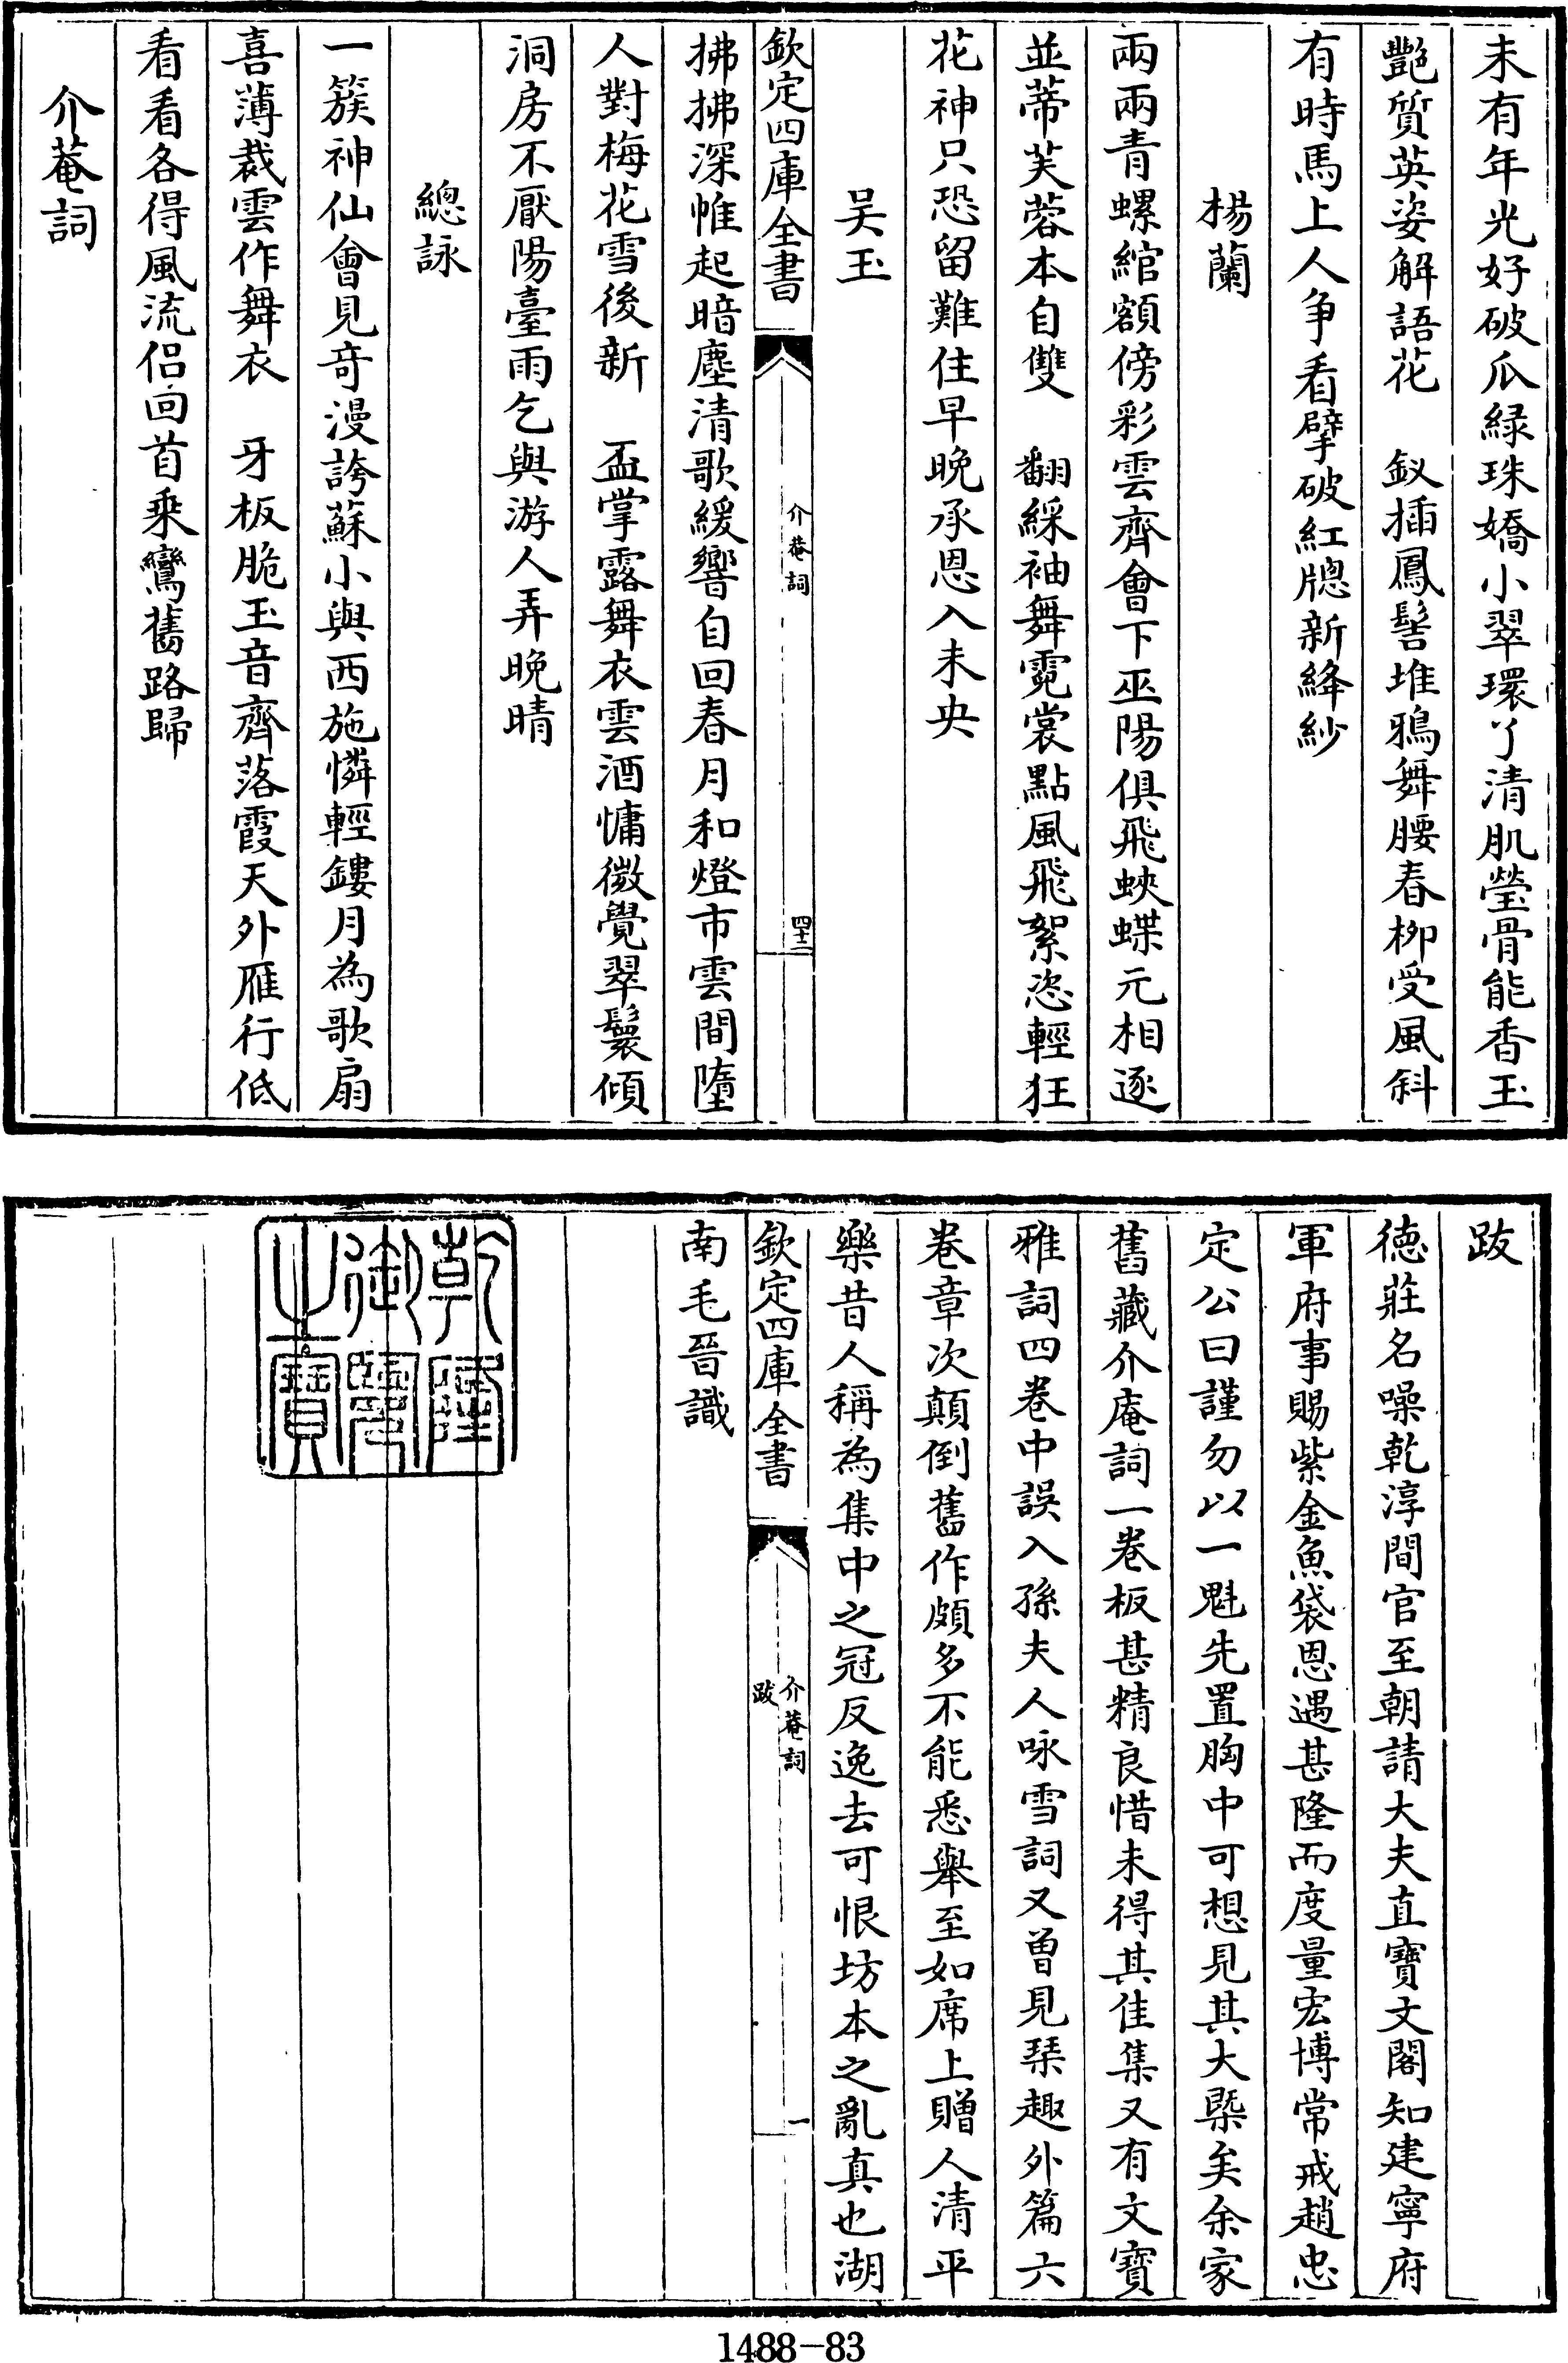 未有年光好破瓜緑珠嬌小翠環丫清肌瑩骨能香玉
艷質英姿解語花　釵插鳳髻堆鴉舞腰春栁受風斜
有時馬上人争看擘破紅牕新絳紗
楊蘭
兩兩青螺綰額傍彩雲齊會下巫陽俱飛蛺蝶元相逐
並蒂芙蓉本自雙　翻綵袖舞霓裳㸃風飛絮恣輕狂
花神只恐留難住早晚承恩入未央
吴玉
欽定四庫全書
介菴詞
四十二
拂拂深帷起暗塵清歌緩響自回春月和燈市雲間墮
人對梅花雪後新　盃掌露舞衣雲酒慵微覺翠鬟傾
洞房不厭陽臺雨乞與游人弄晚晴
總詠
一簇神仙會見竒漫誇蘇小與西施憐輕鏤月為歌扇
喜薄裁雲作舞衣　牙板脆玉音齊落霞天外雁行低
看看各得風流侣回首乗鸞舊路歸
介菴詞
跋
徳莊名噪乾淳間官至朝請大夫直寶文閣知建寧府
軍府事賜紫金魚袋恩遇甚隆而度量宏博常戒趙忠
定公曰謹勿以一魁先置胸中可想見其大槩矣余家
舊藏介庵詞一卷板甚精良惜未得其佳集又有文寳
雅詞四卷中誤入孫夫人咏雪詞又曽見琴趣外篇六
卷章次顛倒舊作頗多不能悉舉至如席上贈人清平
樂昔人稱為集中之冠反逸去可恨坊本之亂真也湖
欽定四庫全書
介菴詞
跋
一
南毛晉識
乾隆
御覽
之寶
1488-83